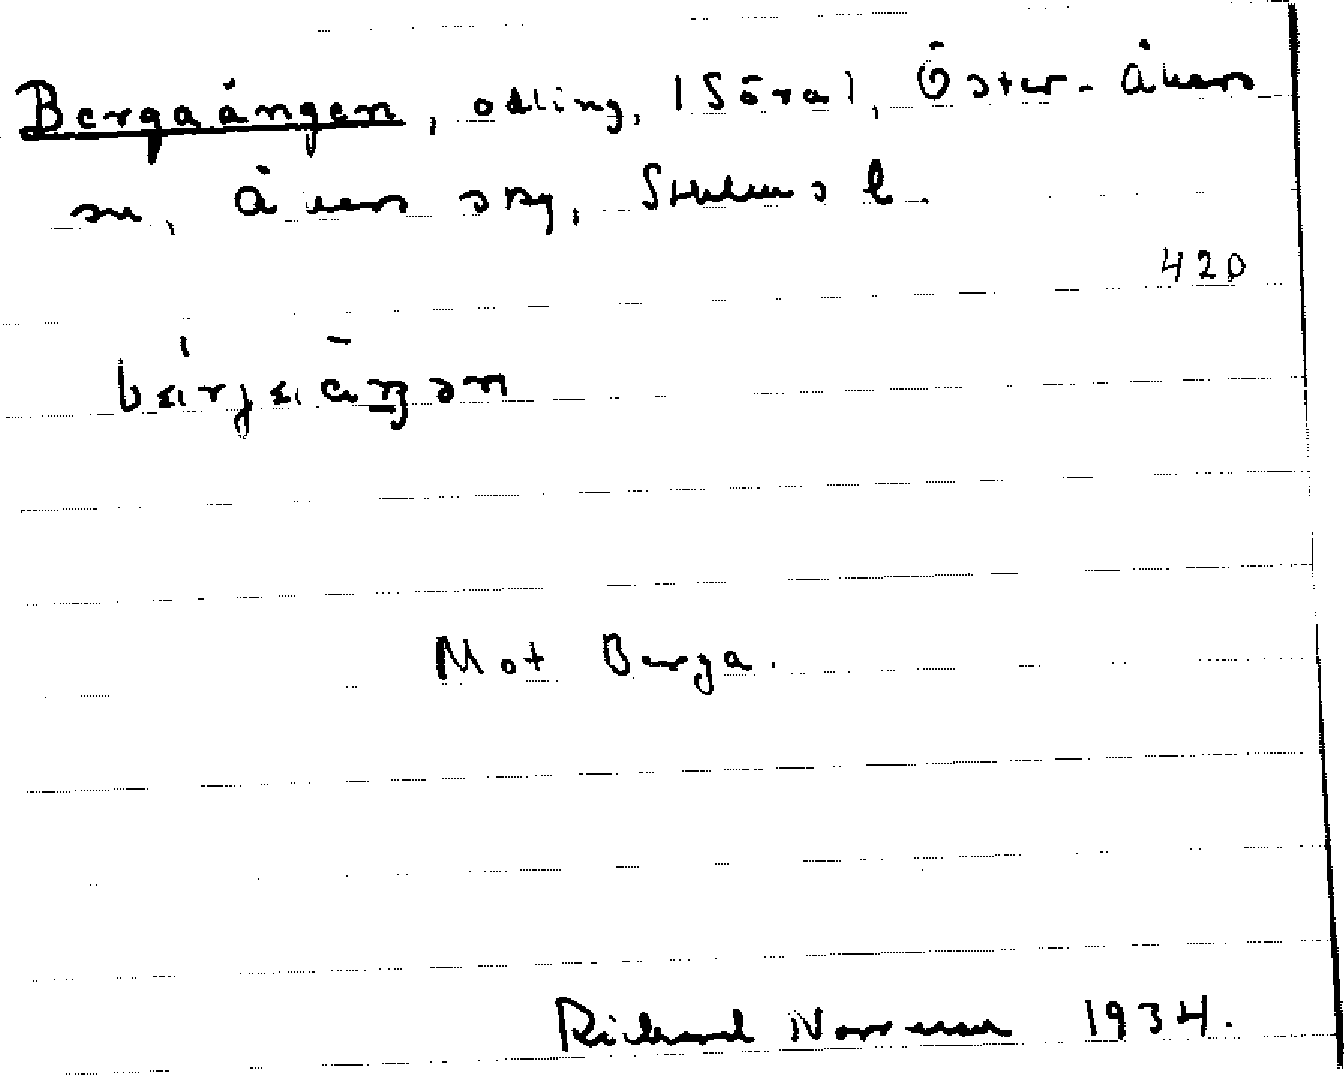 Bergaängen, odling, (Söra), Öster-Åkers
sn, Åkers skg, Sthlms l.
420
Mot Berga.
Richard Norrman 1934.